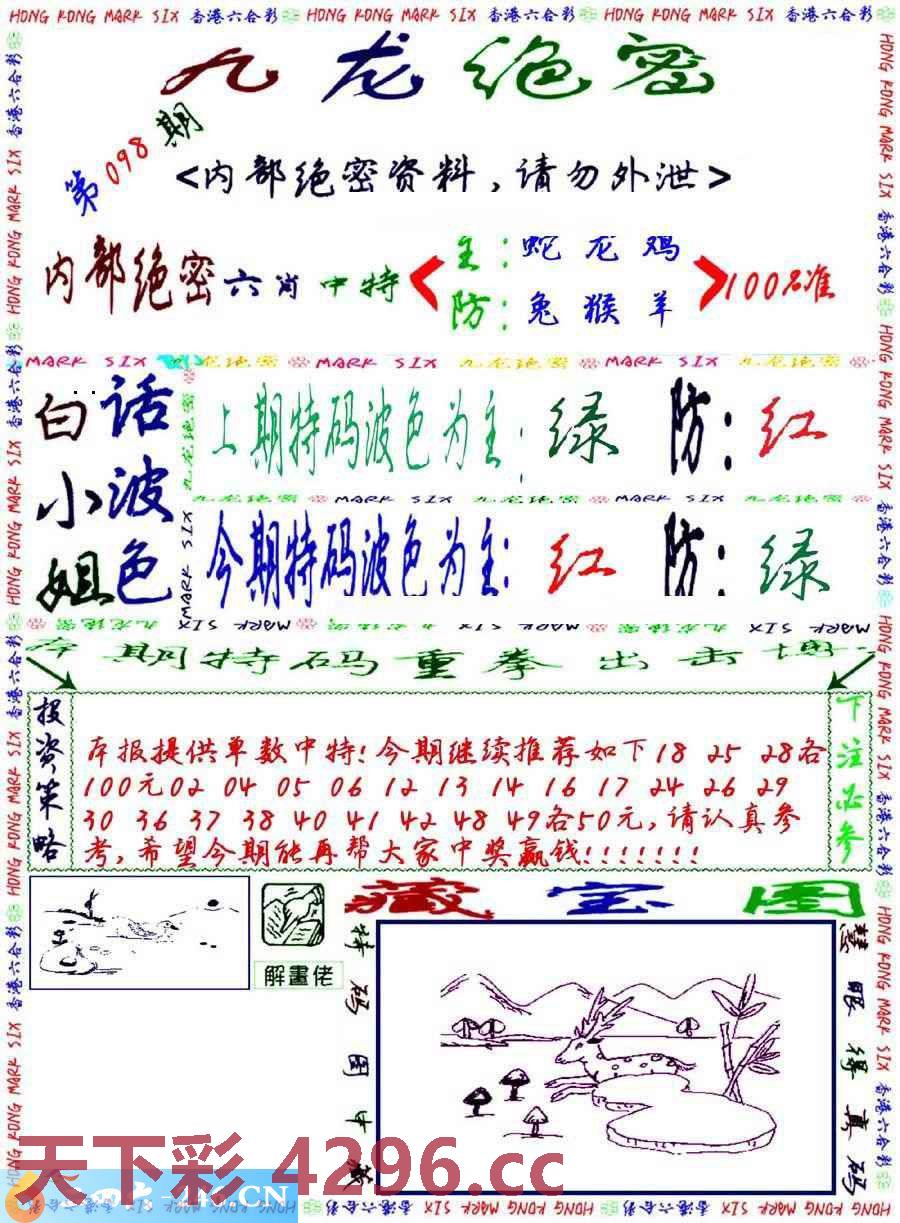 HONG KONG MARK SIX 香港六合彩 HONG KONG MARK SIX 香港六合彩 HONG KONG MARK SIX 香港六合彩
九龙绝密
第098期
<内部绝密资料,请勿外泄>
内部绝密六肖中特
主:蛇龙鸡
防:兔猴羊
100%准
MARK SIX 九龙绝密 MARK SIX 九龙绝密 MARK SIX 九龙绝密
白话
小波
姐色
上期特码波色为主:绿 防:红
九龙绝密 MARK SIX 九龙绝密 MARK SIX 九龙绝密
今期特码波色为主:红 防:绿
期特码重拳出击
投资策略
本报提供单数中特!今期继续推荐如下18 25 28各
100元02 04 05 06 12 13 14 16 17 24 26 29
30 36 37 38 40 41 42 48 49各50元,请认真参
考,希望今期能再帮大家中奖赢钱!!!!!!!
下注必参
解畫佬
藏宝图
特码图中
慧眼得真码
天下彩 4296.cc